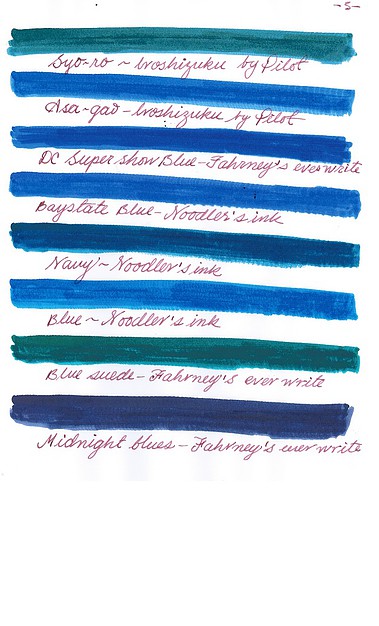 -5-
Syo-ro ~ Iroshizuku by Pilot
Asa-gao - Iroshizuku by Pilot
DC Super show Blue - Fahrney's ever write
Baystate Blue - Noodler's ink
Navy ~ Noodler's ink
Blue ~ Noodler's ink
Blue suede - Fahrney's ever write
Midnight blues - Fahrney's ever write